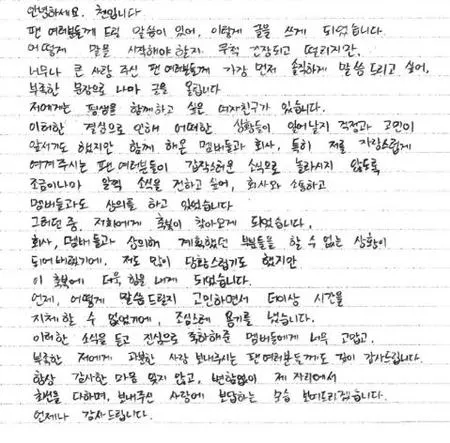 안녕하세요. 첸입니다
팬 여러분들께 드릴 말씀이 있어, 이렇게 글을 쓰게 되었습니다.
어떻게 말을 시작해야 할지 무척 긴장되고 떨리지만,
너무나 큰 사랑 주신 팬 여러분들께 가장 먼저 솔직하게 말씀 드리고 싶어,
부족한 문장으로 나마 글을 올립니다
저에게는 평생을 함께 하고 싶은 여자친구가 있습니다.
이러한 결심으로 인해 어떠한 상황들이 일어날지 걱정과 고민이
앞서기도 했지만 함께 해온 멤버들과 회사, 특히 저를 자랑스럽게
여겨 주시는 팬 여러분들이 갑작스러운 소식으로 놀라시지 않도록
조금이나마 일찍 소식을 전하고 싶어, 회사와 소통하고
멤버들과도 상의를 하고 있었습니다
그러던 중, 저희에게 축복이 찾아오게 되었습니다.
회사, 멤버들과 상의해 계획했던 부분들을 할 수 없는 상황이
되어버렸기에, 저도 많이 당황스럽기도 했지만
이 축복에 더욱 힘을 내게 되었습니다.
언제, 어떻게 말씀드릴지 고민하면서 더이상 시간을
지체 할 수 없었기에, 조심스레 용기를 냈습니다.
이러한 소식을 듣고 진심으로 축하해준 멤버들에게 너무 고맙고,
부족한 저에게 과분한 사랑 보내주시는 팬 여러분들께도 깊이 감사드립니다.
항상 감사한 마음 잊지 않고, 변함없이 제 자리에서
최선을 다하며, 보내주신 사랑에 보답하는 모습 보여드리겠습니다.
언제나 감사드립니다.